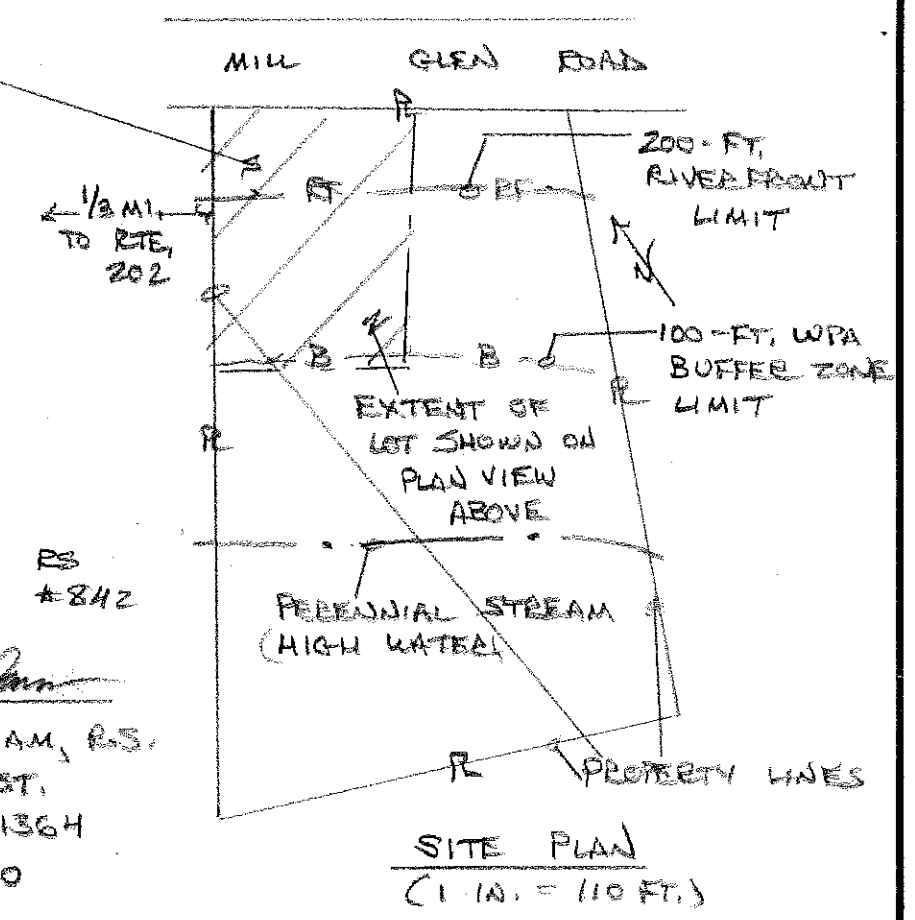 MILL GLEN ROAD
PL
200-FT,
RIVERFRONT
LIMIT
RF RF
1/3 MI.
TO RTE,
202
N
100-FT, WPA
BUFFER ZONE
LIMIT
B B
PL
EXTENT OF
LOT SHOWN ON
PLAN VIEW
ABOVE
PL
RS
#842
PERENNIAL STREAM
(HIGH WATER)
AM, R.S.
ST.
1364
0
PL
PROPERTY LINES
SITE PLAN
(1 IN. = 110 FT.)